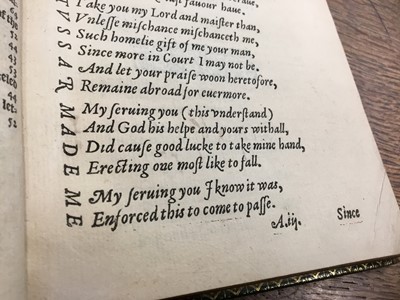 fauour haue.
I ake you my Lord and maiſter than,
Vnleſſe miſchance miſchanceth me,
Such homelie gift of me your man,
Since more in Court I may not be.
And let your praiſe woon heretofore,
Remaine abroad for euermore.
My ſeruing you (this vnderſtand)
And God his helpe and yours withall,
Did cauſe good lucke to take mine hand,
Erecting one moſt like to fall.
My ſeruing you I know it was,
Enforced this to come to paſſe.
A.iij. Since
TVSSAR MADE ME
52
44
43
52
44
let.
52